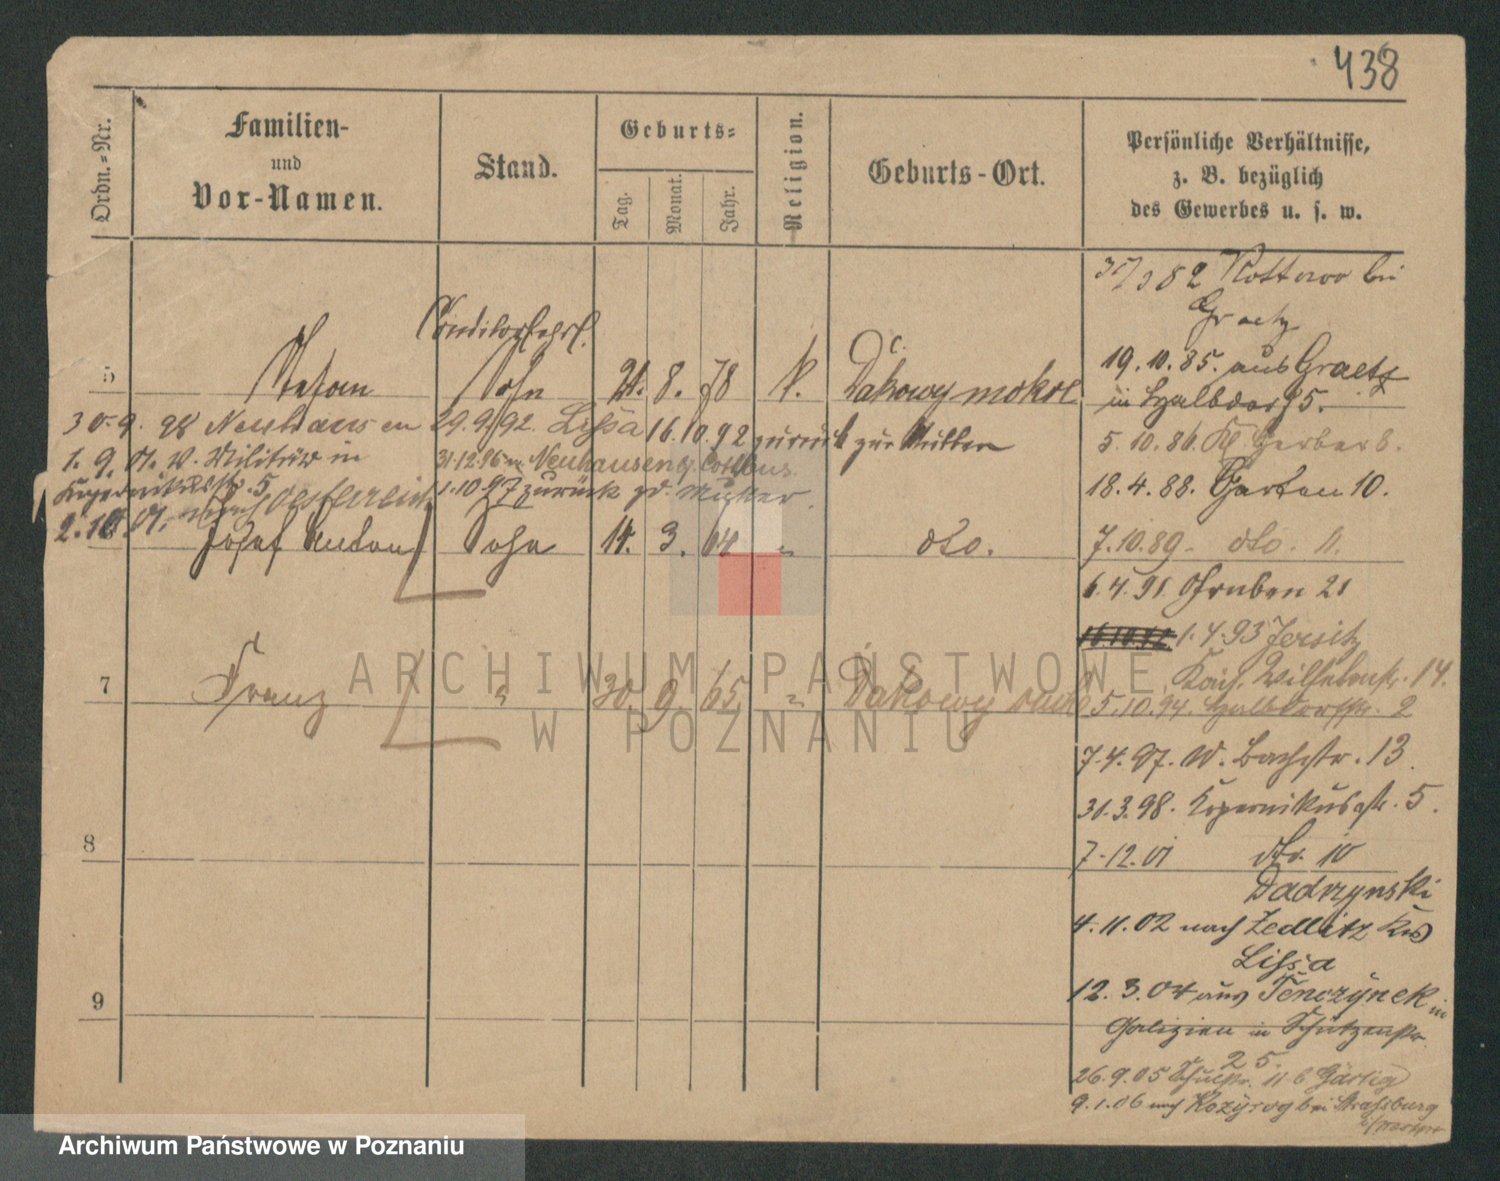 438
Ordn.=Nr.
Familien-
und
Vor-Namen.
Stand.
Geburts=
Tag.
Monat.
Jahr.
Religion.
Geburts-Ort.
Persönliche Verhältnisse,
z. B. bezüglich
des Gewerbes u. s. w.
82 Kottowo bei
Graetz
Conditorlehrl.
5 Stefan Sohn 21. 8. 78 k. Dakowy mokre
19.10.85. aus Graetz
in Halbdorf 5.
30.9.98 Neuhausen 29.9.92. Lissa 16.10.92 zurück zur Mutter
5.10.86. Kl. Gerberb.
1.9.01. v. Militär in 31.12.96 n. Neuhausen Cottbus.
Kopernikusstr. 5 1.10.97 zurück zd. Mutter.
18.4.88. Garten 10.
2.10.01. nach Oesterreich
Josef Anton Sohn 14. 3. 64 " dto.
7.10.89. dto. 11.
6.4.91 Gruben 21
16.10.92 1.4.93 Jersitz
Kais. Wilhelmstr. 14.
7 Franz " 30. 9. 65 " Dakowy
5.10.94. Halbdorfstr. 2
7.4.97. W. Bachstr. 13.
31.3.98. Kopernikusstr. 5.
8
7.12.01 dto. 10
Dadrzynski
4.11.02 nach Zedlitz Krs
Lissa
9
12.3.04 aus Tenczynek in
Galizien in Schützenstr.
25.
26.9.05 11 b Gärtig
9.1.06 nach Kozyrog bei Strassburg
ARCHIWUM PAŃSTWOWE
W POZNANIU
Archiwum Państwowe w Poznaniu